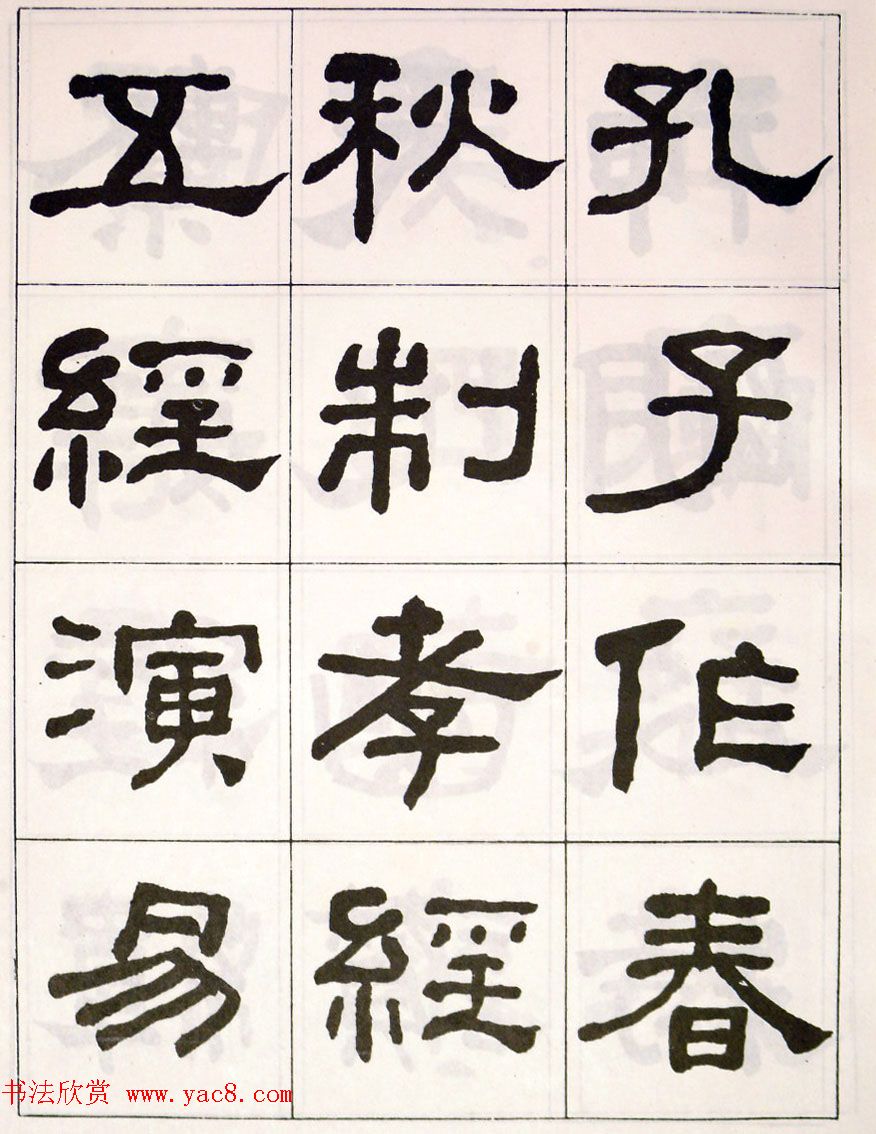 孔子作春
秋制孝經
五經演易
书法欣赏 www.yac8.com